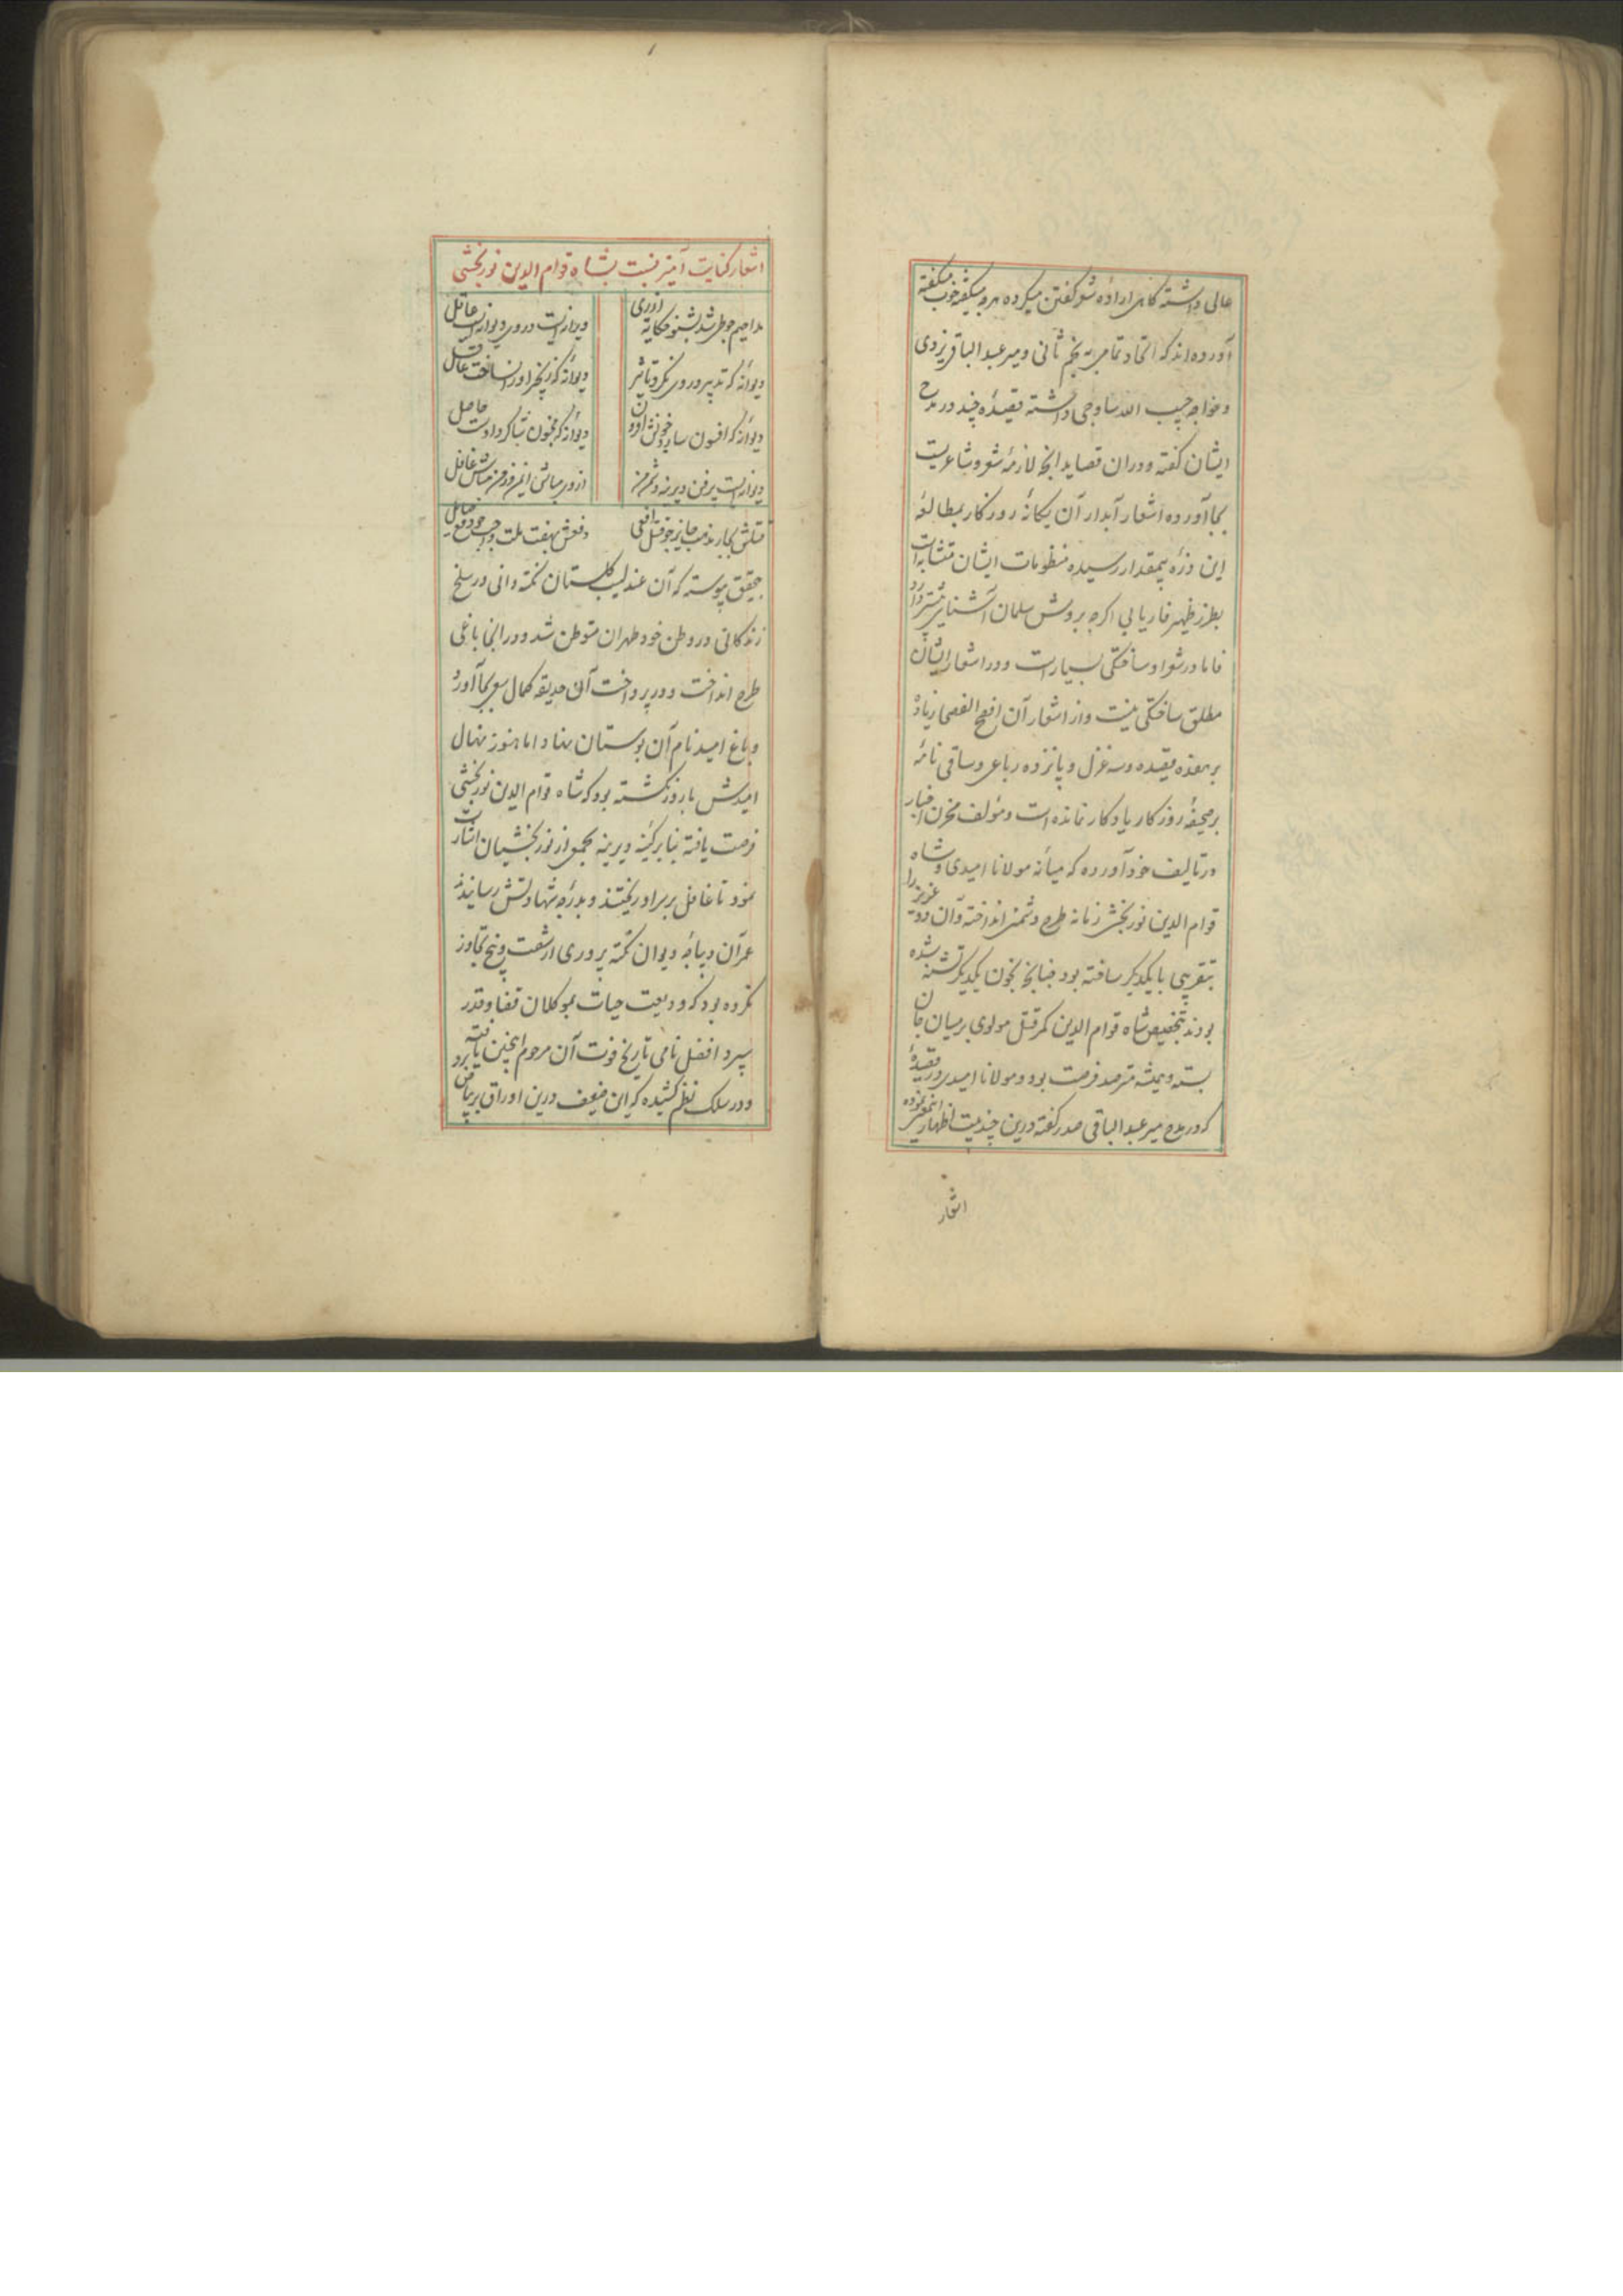 عالی داشته کاهی اراده شعر گفتن میکرده هرچه میگفته خوب میگفته
آورده‌اند که اتحاد تمامی به نجم ثانی و میر عبد الباقی یزدی
و خواجه حبیب الله ساوجی داشته قصیدهٔ چند در مدح
ایشان گفته و در آن قصاید آنچه لازمهٔ شعر و شاعریست
بجا آورده اشعار آبدار آن یگانهٔ روزگار بمطالعهٔ
این ذرهٔ بیمقدار رسیده منظومات ایشان متشابه است
بطرز ظهیر فاریابی اگرچه بروش سلمان آشناییش بیشتر دارد
فاما در شعر او ساختگی بسیارست و در اشعار ایشان
مطلق ساختگی نیست و از اشعار آن افصح الفصحا زیاده
بر هفده قصیده و سه غزل و پانزده رباعی و ساقی نامهٔ
بر صحیفهٔ روزکار یادکار نمانده است و مؤلف مخزن اخبار
در تألیف خود آورده که میانهٔ مولانا امیدی و شاه
قوام الدین نوربخش زمانه طرح دشمنی انداخته و آن دو عزیز را
بتقریبی با یکدیگر ساخته بود چنانچه بخون یکدیگر تشنه شده
بودند بتخصیص شاه قوام الدین کمر قتل مولوی بر میان جان
بسته و همیشه مترصد فرصت بود و مولانا امیدی در قصیدهٔ
که در مدح میر عبد الباقی صدر گفته درین چند بیت اظهار اینمعنی نموده
اشعار
اشعار کنایت آمیز نسبت بشاه قوام الدین نوربخشی
دیوانه ایست در ری دیوانه ایست عاقل
دیوانهٔ که تدبیر در وی نکرد تأثیر
دیوانهٔ که زنجیر او را نساخت عاقل
دیوانهٔ که افسون
دیوانهٔ که مجنون شاکرد اوست
دیوانه ایست پرفن دیرینه دشمن من
از وی مباش ایمن وز من مباش غافل
قتلش بچار مذهب جایز چو قتل افعی
دفعش بهفت ملت واجب چو دفع
بتحقیق پیوسته که آن عندلیب گلستان نکته دانی در سلخ
زندکانی در وطن خود طهران متوطن شد و در آنجا باغی
طرح انداخت و در پرداخت آن حدیقه کمال سعی بجا آورد
و باغ امید نام آن بوستان نهاد اما هنوز نهال
امیدش بارور نگشته بود که شاه قوام الدین نوربخشی
فرصت یافته بنا بر کینهٔ دیرینه بجمعی از نوربخشیان اشارت
نمود تا غافل بر سر او ریختند و بدرجهٔ شهادتش رسانیدند
عمر آن دیباچهٔ دیوان نکته پروری از شصت و پنج تجاوز
نکرده بود که ودیعت حیات بموکلان قضا و قدر
سپرد افضل نامی تاریخ فوت آن مرحوم اینچنین یافته
و در سلک نظم کشیده که این ضعیف درین اوراق بر بیاض برد